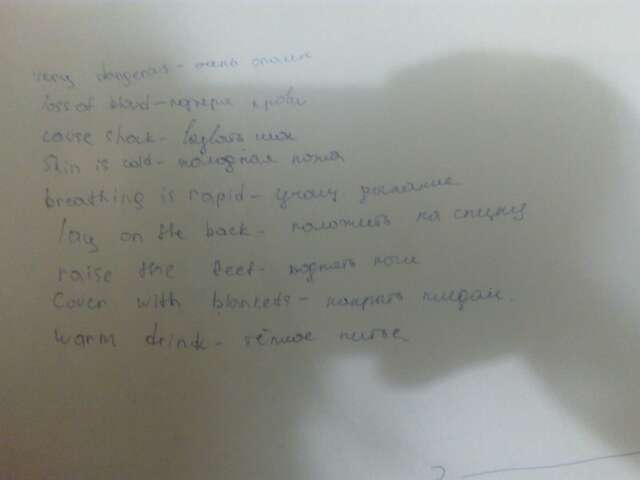 very dangeras - очень опасен
loss of blood - потеря крови
cause shock - вызвать шок
skin is cold - холодная кожа
breathing is rapid - учащ дыхание
lay on the back - положить на спину
raise the feet - поднять ноги
Cover with blankets - накрыть пледом.
warm drink - тёплое питье